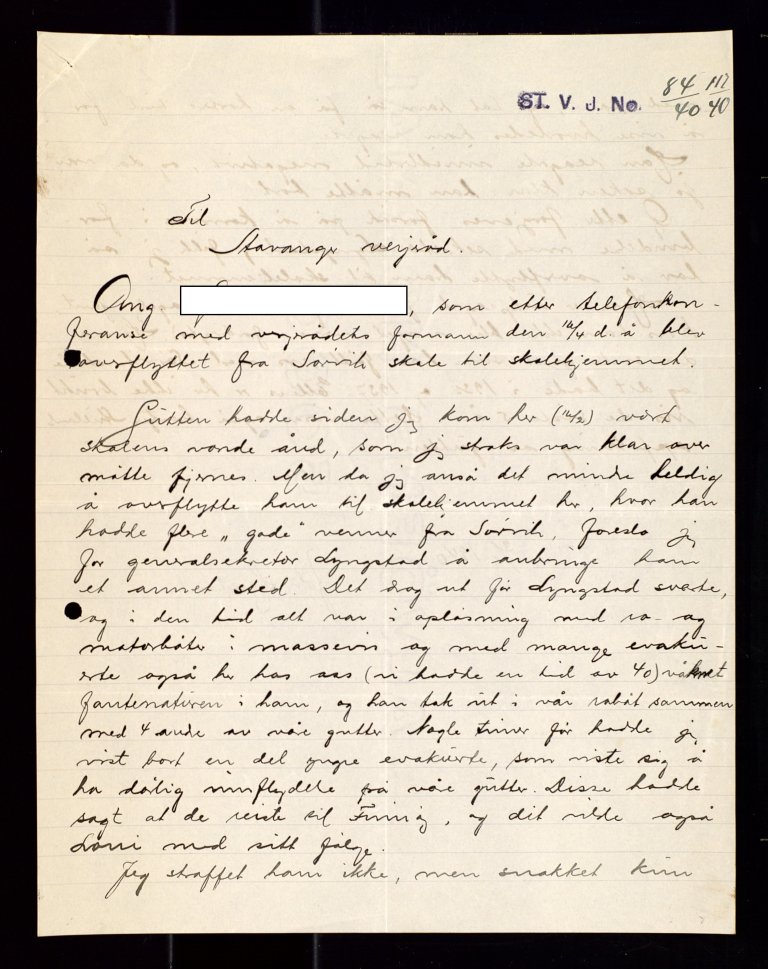 ST. V. J. No. 84/40 117/40
Til
Stavanger verjeråd.
Ang. , som etter telefonkon-
feranse med verjerådets formann den 16/4 d. å blev
overflyttet fra Sørvik skole til skolehjemmet.
Gutten hadde siden jeg kom her (16/2) vært
skolens vonde ånd, som jeg straks var klar over
måtte fjernes. Men da jeg anså det mindre heldig
å overflytte ham til skolehjemmet her, hvor han
hadde flere „gode" venner fra Sørvik, foreslo jeg
for generalsekretær Lyngstad å anbringe ham
et annet sted. Det drog ut før Lyngstad svarte,
og i den tid alt var i opløsning med ro- og
motorbåter i massevis og med mange evaku-
erte også her hos oss (vi hadde en tid av 40) våknet
fantenaturen i ham, og han tok ut i vår robåt sammen
med 4 andre av våre gutter. Nogle timer før hadde jeg
vist bort en del yngre evakuerte, som viste sig å
ha dårlig innflydelse på våre gutter. Disse hadde
sagt at de reiste til Finnøy, og dit vilde også
med sitt følge.
Jeg straffet ham ikke, men snakket kun